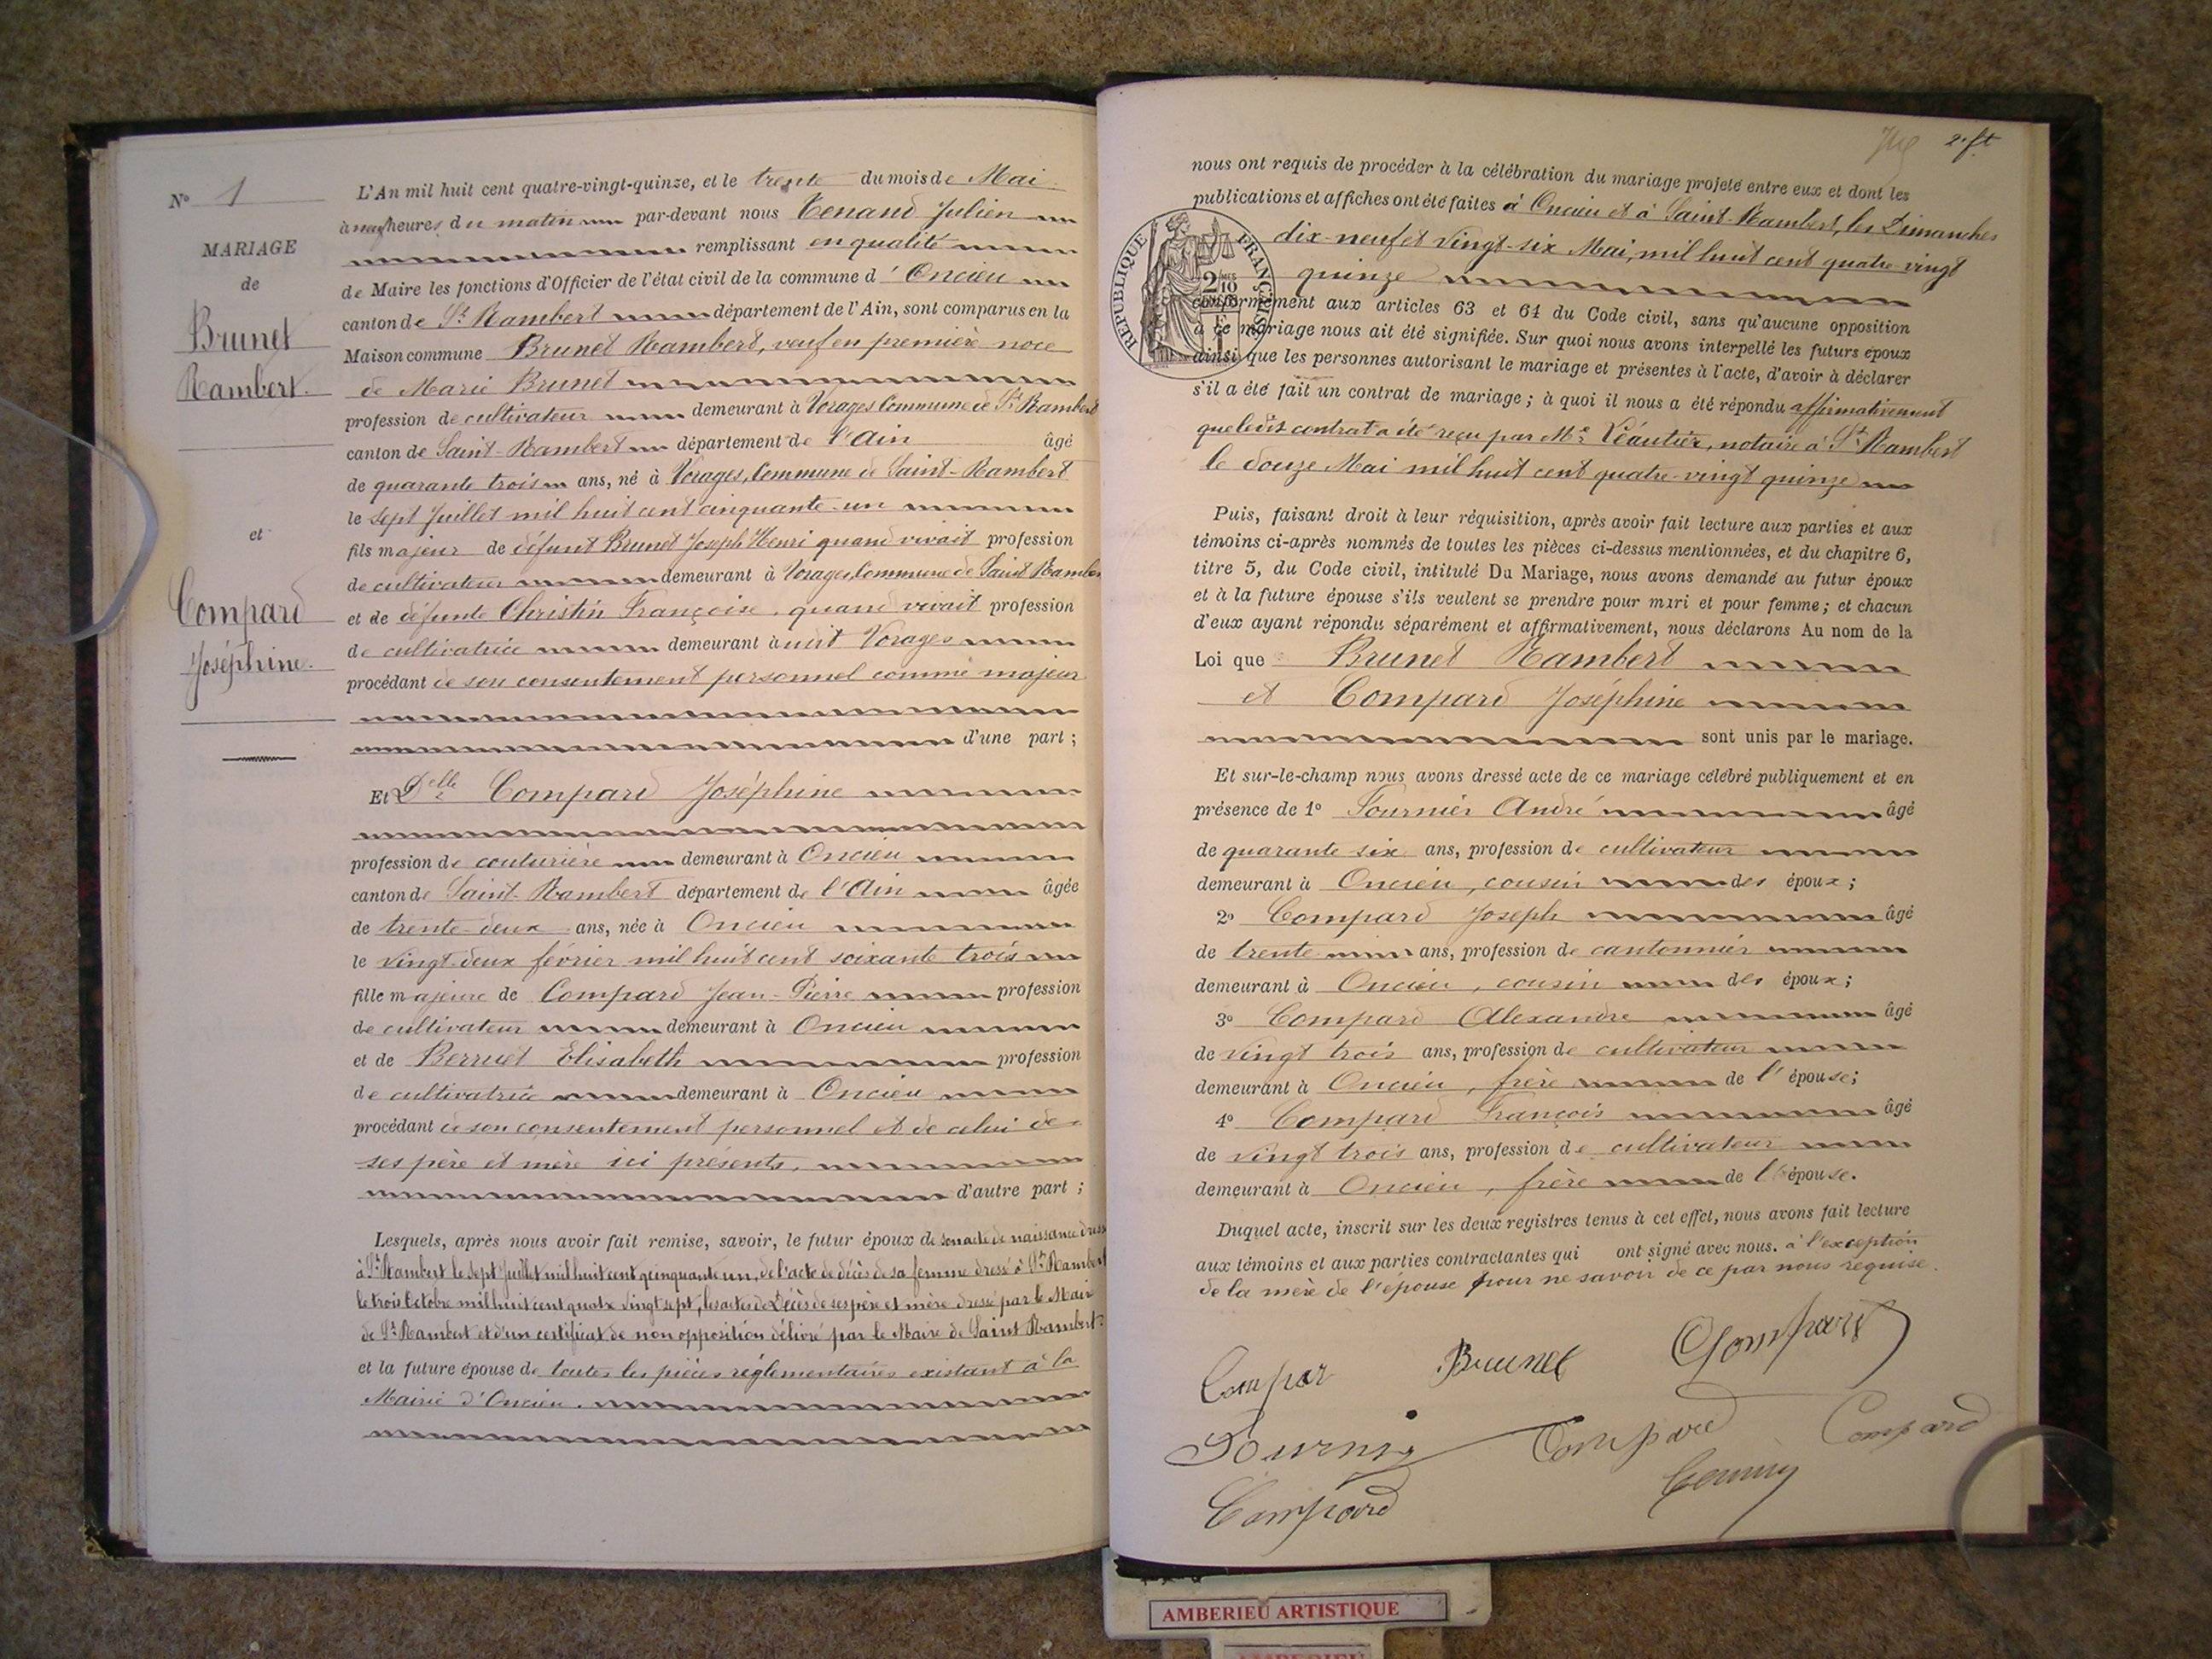 N° 1
MARIAGE
de
Brunet
Rambert.
et
Compard
Joséphine.
L'An mil huit cent quatre-vingt-quinze, et le trente du mois de Mai
à neuf heures du matin par-devant nous Tenand Julien
remplissant en qualité
de Maire les fonctions d'Officier de l'état civil de la commune d'Oncieu
canton de St Rambert département de l'Ain, sont comparus en la
Maison commune Brunet Rambert, veuf en première noce
de Marie Brunet
profession de cultivateur demeurant à Vorages Commune de St Rambert
canton de Saint-Rambert département de l'Ain âgé
de quarante trois ans, né à Vorages, Commune de Saint-Rambert
le sept Juillet mil huit cent cinquante-un
fils majeur de défunt Brunet Joseph Henri quand vivait profession
de cultivateur demeurant à Vorages, Commune de Saint Rambert
et de défunte Christin Françoise, quand vivait profession
de cultivatrice demeurant à Vorages
procédant de son consentement personnel comme majeur
d'une part ;
Et Delle Compard Joséphine
profession de couturière demeurant à Oncieu
canton de Saint-Rambert département de l'Ain âgée
de trente-deux ans, née à Oncieu
le vingt-deux février mil huit cent soixante trois
fille majeure de Compard Jean-Pierre profession
de cultivateur demeurant à Oncieu
et de Berruet Elisabeth profession
de cultivatrice demeurant à Oncieu
procédant de son consentement personnel et de celui de
ses père et mère ici présents,
d'autre part ;
Lesquels, après nous avoir fait remise, savoir, le futur époux de son acte de naissance dressé
à St Rambert le sept Juillet mil huit cent cinquante un, de l'acte de décès de sa femme dressé à St Rambert
le trois Octobre mil huit cent quatre vingt sept, les actes de Décès de ses père et mère dressé par le Maire
de St Rambert et d'un certificat de non opposition délivré par le Maire de Saint Rambert
et la future épouse de toutes les pièces réglementaires existant à la
Mairie d'Oncieu.
2e ft
nous ont requis de procéder à la célébration du mariage projeté entre eux et dont les
publications et affiches ont été faites à Oncieu et à Saint-Rambert, les Dimanches
dix-neuf et vingt-six Mai, mil huit cent quatre-vingt
quinze
RÉPUBLIQUE FRANÇAISE
conformément aux articles 63 et 64 du Code civil, sans qu'aucune opposition
à ce mariage nous ait été signifiée. Sur quoi nous avons interpellé les futurs époux
ainsi que les personnes autorisant le mariage et présentes à l'acte, d'avoir à déclarer
s'il a été fait un contrat de mariage ; à quoi il nous a été répondu affirmativement
que ledit contrat a été reçu par Me Léautier, notaire à St Rambert
le douze Mai mil huit cent quatre-vingt quinze
Puis, faisant droit à leur réquisition, après avoir fait lecture aux parties et aux
témoins ci-après nommés de toutes les pièces ci-dessus mentionnées, et du chapitre 6,
titre 5, du Code civil, intitulé Du Mariage, nous avons demandé au futur époux
et à la future épouse s'ils veulent se prendre pour mari et pour femme ; et chacun
d'eux ayant répondu séparément et affirmativement, nous déclarons Au nom de la
Loi que Brunet Rambert
et Compard Joséphine
sont unis par le mariage.
Et sur-le-champ nous avons dressé acte de ce mariage célébré publiquement et en
présence de 1° Fournier André âgé
de quarante six ans, profession de cultivateur
demeurant à Oncieu, cousin des époux ;
2° Compard Joseph âgé
de trente ans, profession de cantonnier
demeurant à Oncieu, cousin des époux ;
3° Compard Alexandre âgé
de vingt trois ans, profession de cultivateur
demeurant à Oncieu, frère de l'épouse;
4° Compard François âgé
de vingt trois ans, profession de cultivateur
demeurant à Oncieu, frère de l'épouse.
Duquel acte, inscrit sur les deux registres tenus à cet effet, nous avons fait lecture
aux témoins et aux parties contractantes qui ont signé avec nous. à l'exception
de la mère de l'épouse pour ne savoir de ce par nous requise.
Compar Brunet Compard
Fournier Compard Compard
Compard
AMBERIEU ARTISTIQUE
AMBERIEU